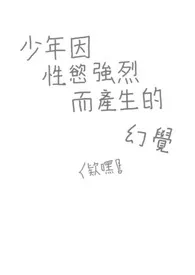 少年因
性慾強烈
而產生的
幻覺
〈欸嘿〉